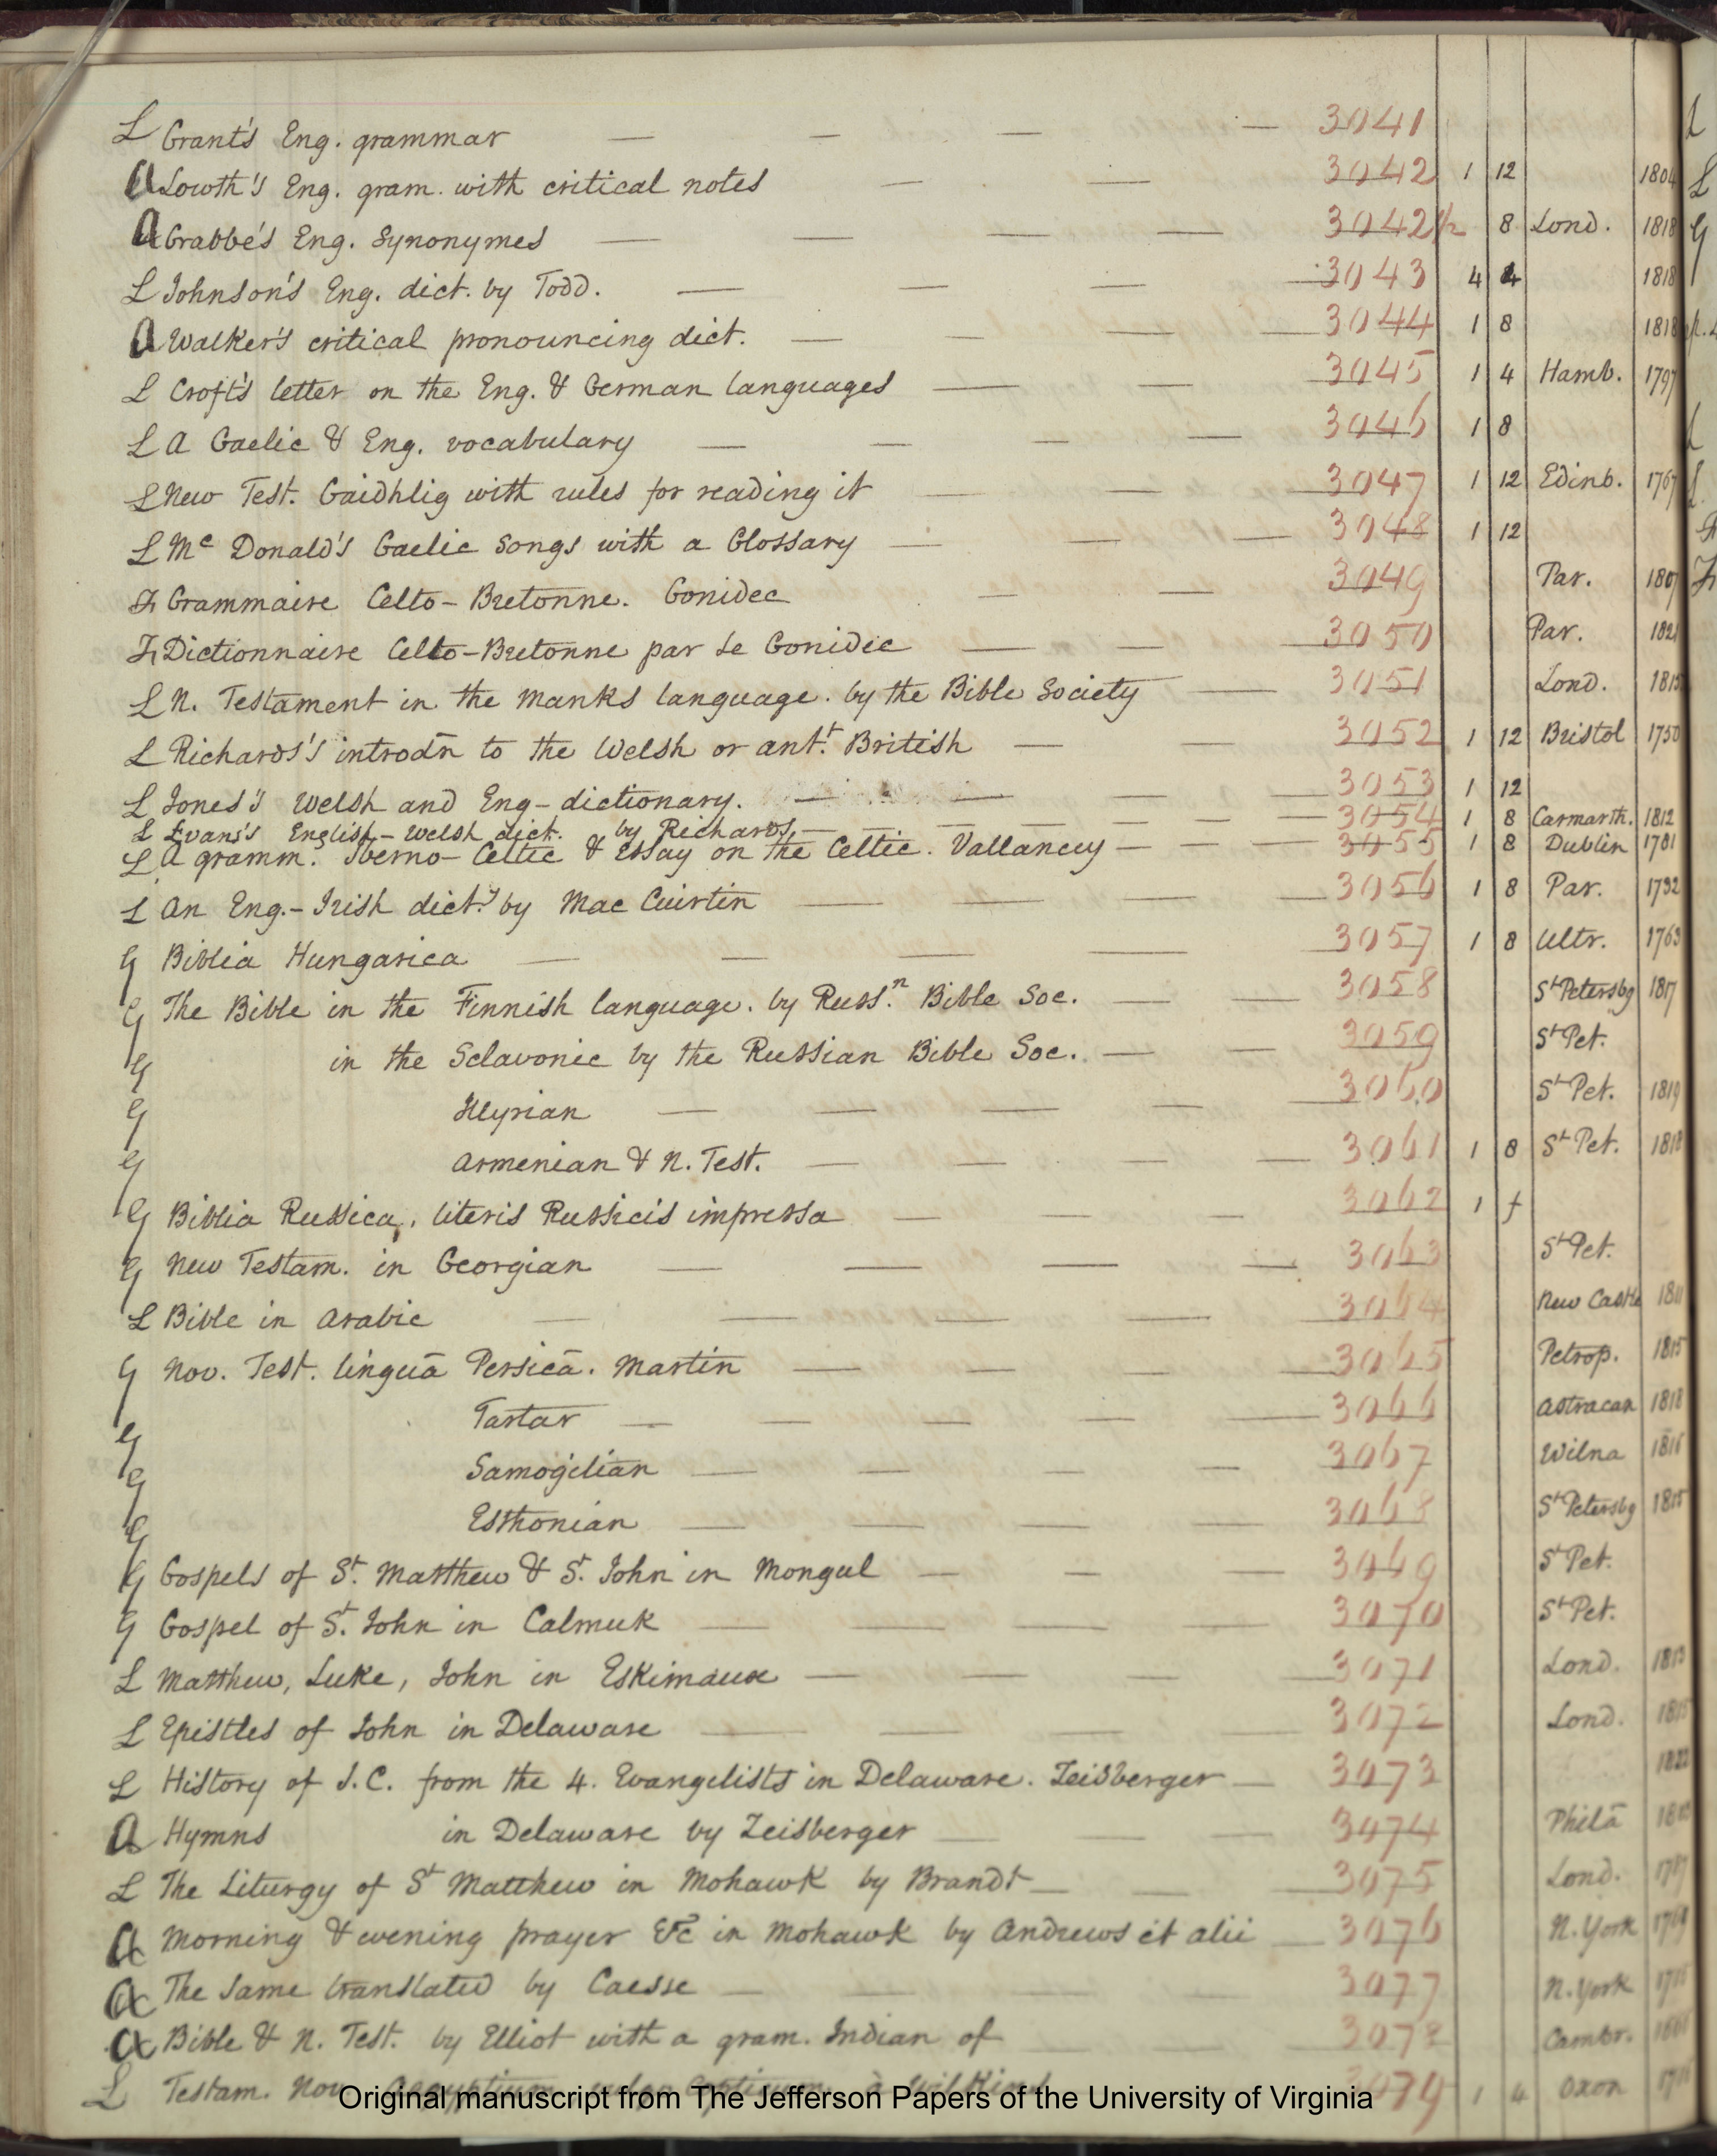 L Grant's Eng. grammar — — — — 3041
a Lowth's Eng. gram. with critical notes — — 3042 1 12 1804
a Crabbe's Eng. Synonymes — — — — 3042½ 8 Lond. 1818
L Johnson's Eng. dict. by Todd. — — — 3043 4 4 1818
a Walker's critical pronouncing dict. — — — 3044 1 8 1818
L Croft's letter on the Eng. & German languages — — 3045 1 4 Hamb. 1797
L A Gaelic & Eng. vocabulary — — — — 3046 1 8
L New Test. Gaidhlig with rules for reading it — — — 3047 1 12 Edinb. 1767
L Mc Donald's Gaelic Songs with a Glossary — — — 3048 1 12
Fr Grammaire Celto-Bretonne. Gonidec — — 3049 Par. 1807
Fr Dictionnaire Celto-Bretonne par Le Gonidec — — — 3050 Par. 1821
L N. Testament in the Manks language. by the Bible Society — 3051 Lond. 1815
L Richards's introdn to the Welsh or ant.t British — — 3052 1 12 Bristol 1750
L Jones's Welsh and Eng-dictionary. — — — 3053 1 12
L Evans's English-Welsh dict. by Richards — — — — — — 3054 1 8 Carmarth. 1812
L A gramm. Iberno-Celtic & Essay on the Celtic. Vallancey — — — 3055 1 8 Dublin 1781
L An Eng.-Irish dict.y by Mac Cuirtin — — — 3056 1 8 Par. 1732
G Biblia Hungarica — — — — 3057 1 8 Ultr. 1763
G The Bible in the Finnish language. by Russ.n Bible Soc. — — 3058 St Petersbg 1817
G in the Sclavonic by the Russian Bible Soc. — — 3059 St Pet.
G Illyrian — — — — 3060 St Pet. 1819
G Armenian & N. Test. — — — — 3061 1 8 St Pet. 1818
G Biblia Russica, literis Russicis impressa — — — 3062 1 f
G New Testam. in Georgian — — — — 3063 St Pet.
L Bible in Arabic — — — — 3064 New Castle 1811
G Nov. Test. linguâ Persicâ. Martin — — — 3065 Petrop. 1815
G Tartar — — — — — 3066 Astracan 1818
G Samogilian — — — — 3067 Wilna 1816
G Esthonian — — — — 3068 St Petersbg 1815
G Gospels of St. Matthew & St. John in Mongul — — — 3069 St Pet.
G Gospel of St. John in Calmuk — — — — 3070 St Pet.
L Matthew, Luke, John in Eskimaux — — — — 3071 Lond. 1813
L Epistles of John in Delaware — — — 3072 Lond.
L History of J.C. from the 4. Evangelists in Delaware. Zeisberger — 3073 1822
a Hymns in Delaware by Zeisberger — — — 3074 Phila
L The Liturgy of St Matthew in Mohawk by Brandt — — — 3075 Lond. 1787
a Morning & evening prayer &c in Mohawk by Andrews et alii — 3076 N. York 1769
a The same translated by Caesse — — — — 3077 N. York
a Bible & N. Test. by Elliot with a gram. Indian of — — — 3078 Cambr.
L Testam. Nov. 3079 1 4 Oxon
Original manuscript from The Jefferson Papers of the University of Virginia